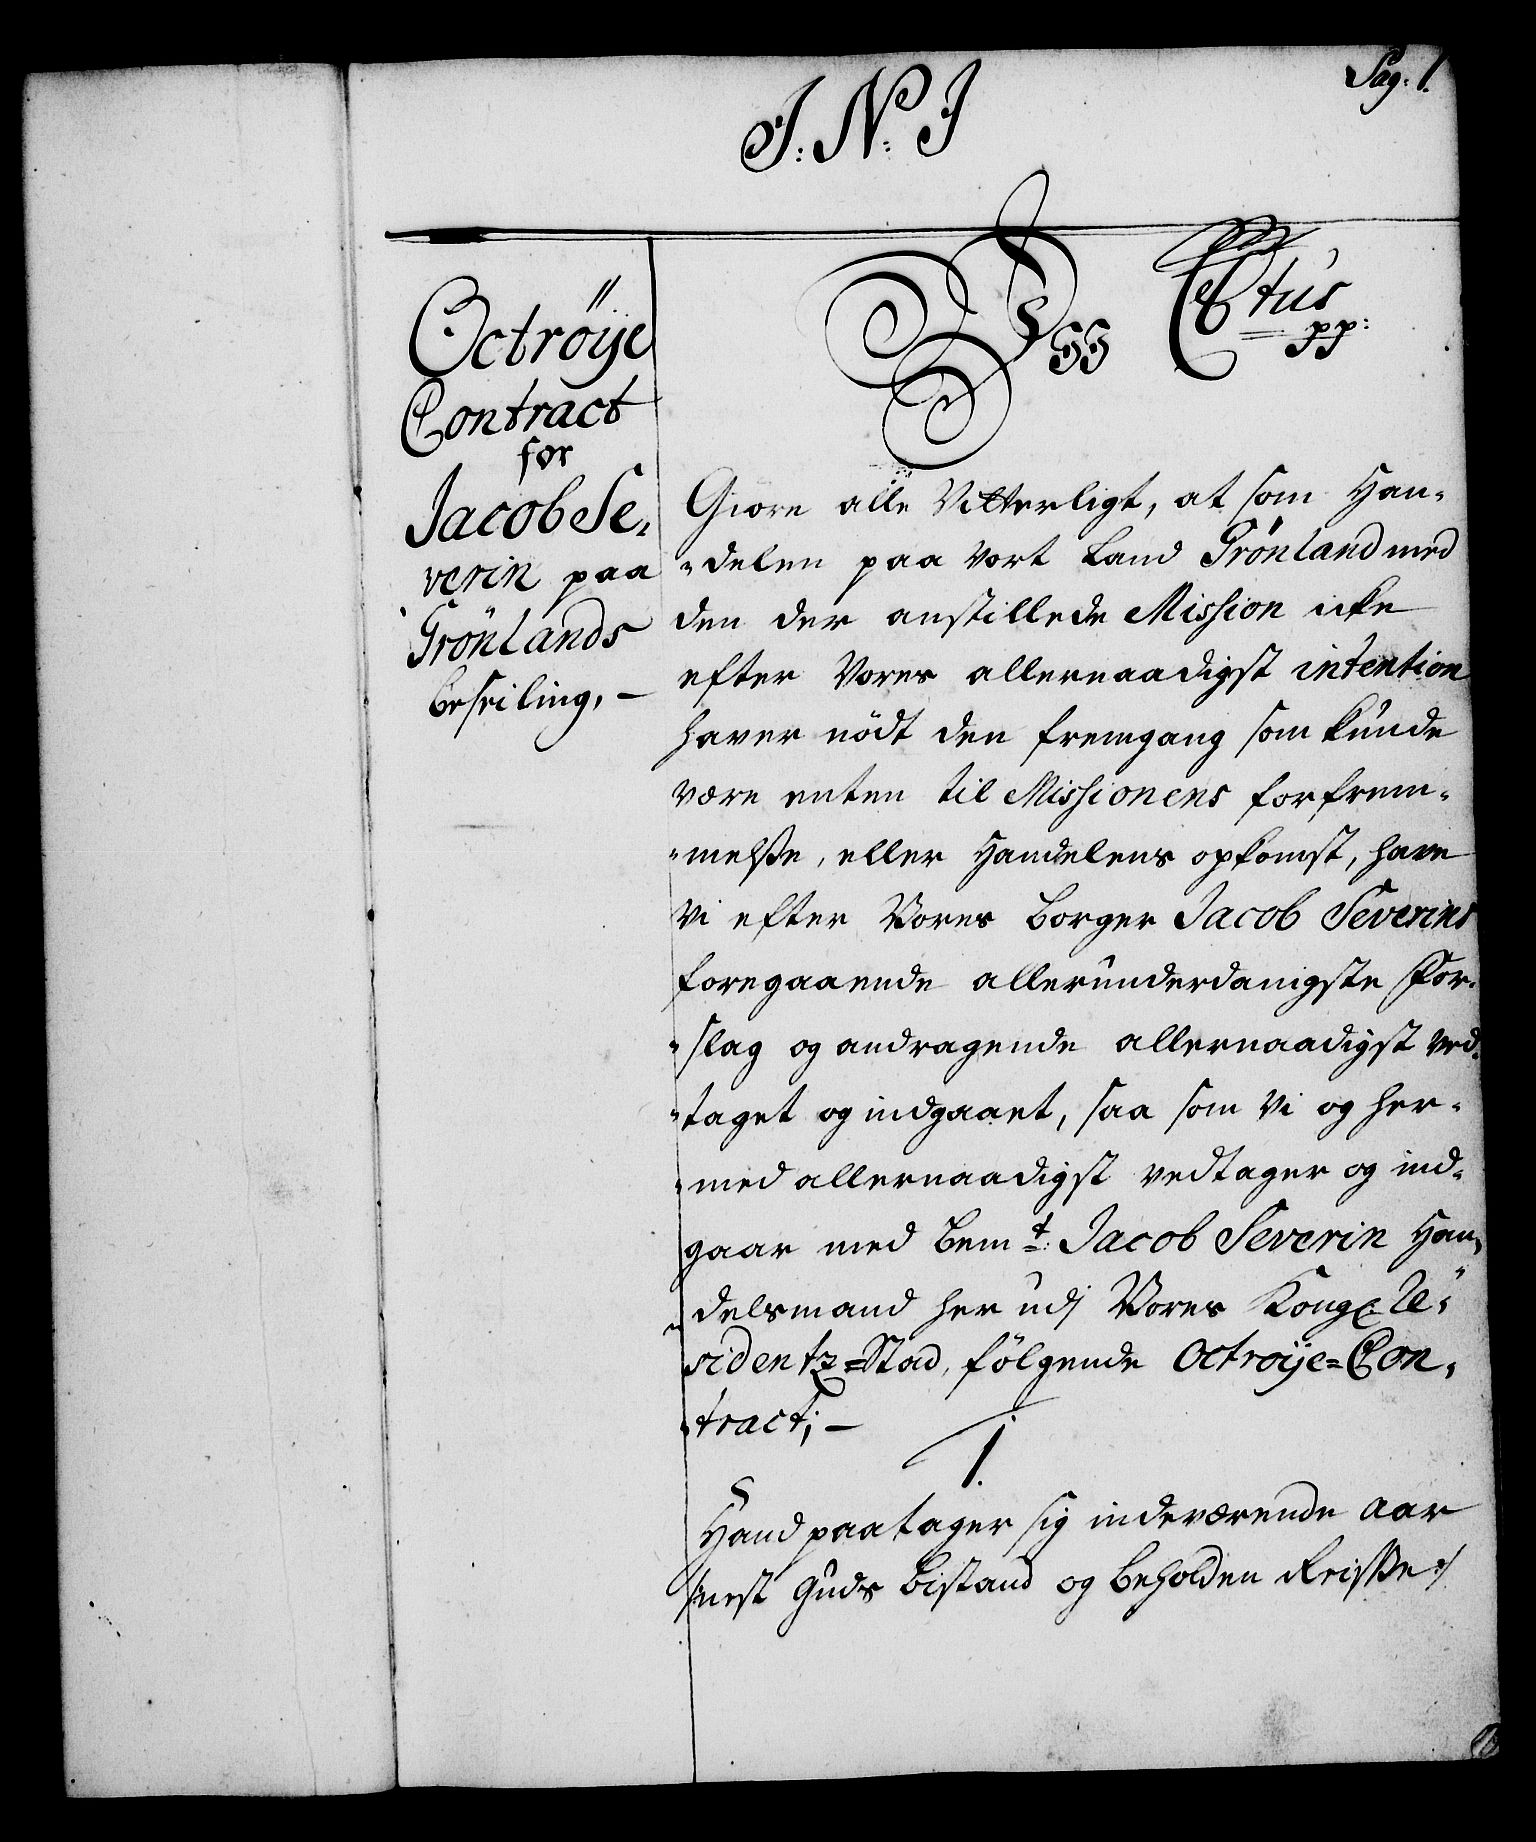 Pag: 1.
J: N: J
Octrøÿe
Contract
for
Jacob Se,
verin paa
Grønlands
beseiling, –
C6tus
pp:
Giøre alle Vitterligt, at som Han-
-delen paa vort Land Grønland med
den der anstillede Mission icke
efter Vores allernaadigst intention
haver nødt den fremgang som kunde
være enten til Missionens forfrem-
-melße, eller Handelens opkomst, have
Vi efter Vores borger Jacob Severins
foregaaende allerunderdanigste For-
-slag og andragende allernaadigst ved-
-taget og indgaaet, saa som Vi og her-
-med allernaadigst vedtager og ind-
gaar med bemt: Jacob Severin Han-
delsmand her udj Vores Kongl: Re-
sidentz=Stad, følgende Octroije=Con-
-tract; –
1.
Hand paatager sig indeværende Aar
/:nest Guds bistand og beholden Reiße:/